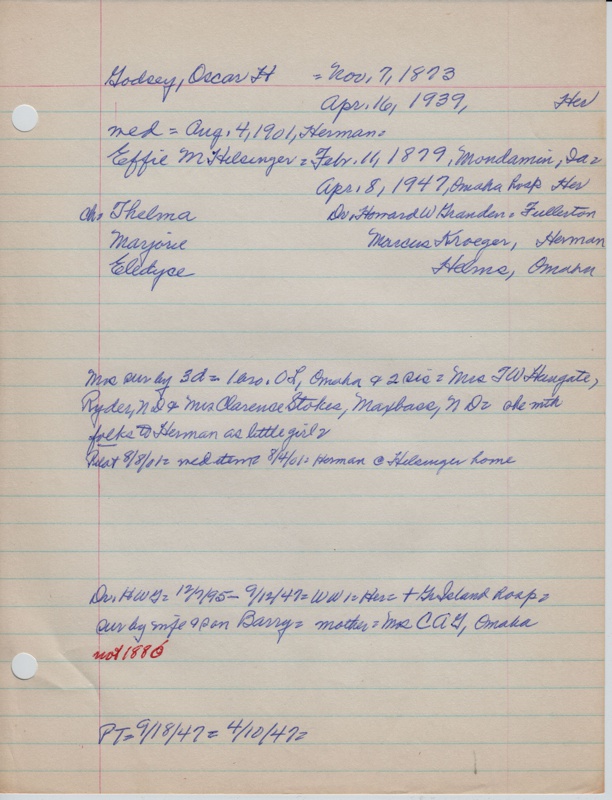 Godsey, Oscar H = Nov. 7, 1873
Apr. 16, 1939, Her
med = Aug. 4, 1901, Herman =
Effie M Hilsinger = Febr. 11, 1879, Mondamin, Ia =
Apr. 8, 1947, Omaha hosp Her
ch = Thelma Dr. Howard W Granden = Fullerton
Marjorie Marcus Kroeger, Herman
Eledyse Helms, Omaha
Mrs sur by 3d = 1 bro. O L, Omaha & 2 sis = Mrs T W Hungate,
Ryder, N D & Mrs Clarense Stokes, Maxbass, N D = she with
folks to Herman as little girl =
Pilot 8/8/01 = med item = 8/4/01 = Herman @ Hilsinger home
Dr. H W G = 12/7/95 - 9/12/47 = W W 1 = Her = + Gr Island hosp =
sur by wife & son Barry = mother = Mrs C A G, Omaha
not 1886
PT = 9/18/47 = 4/10/47 =